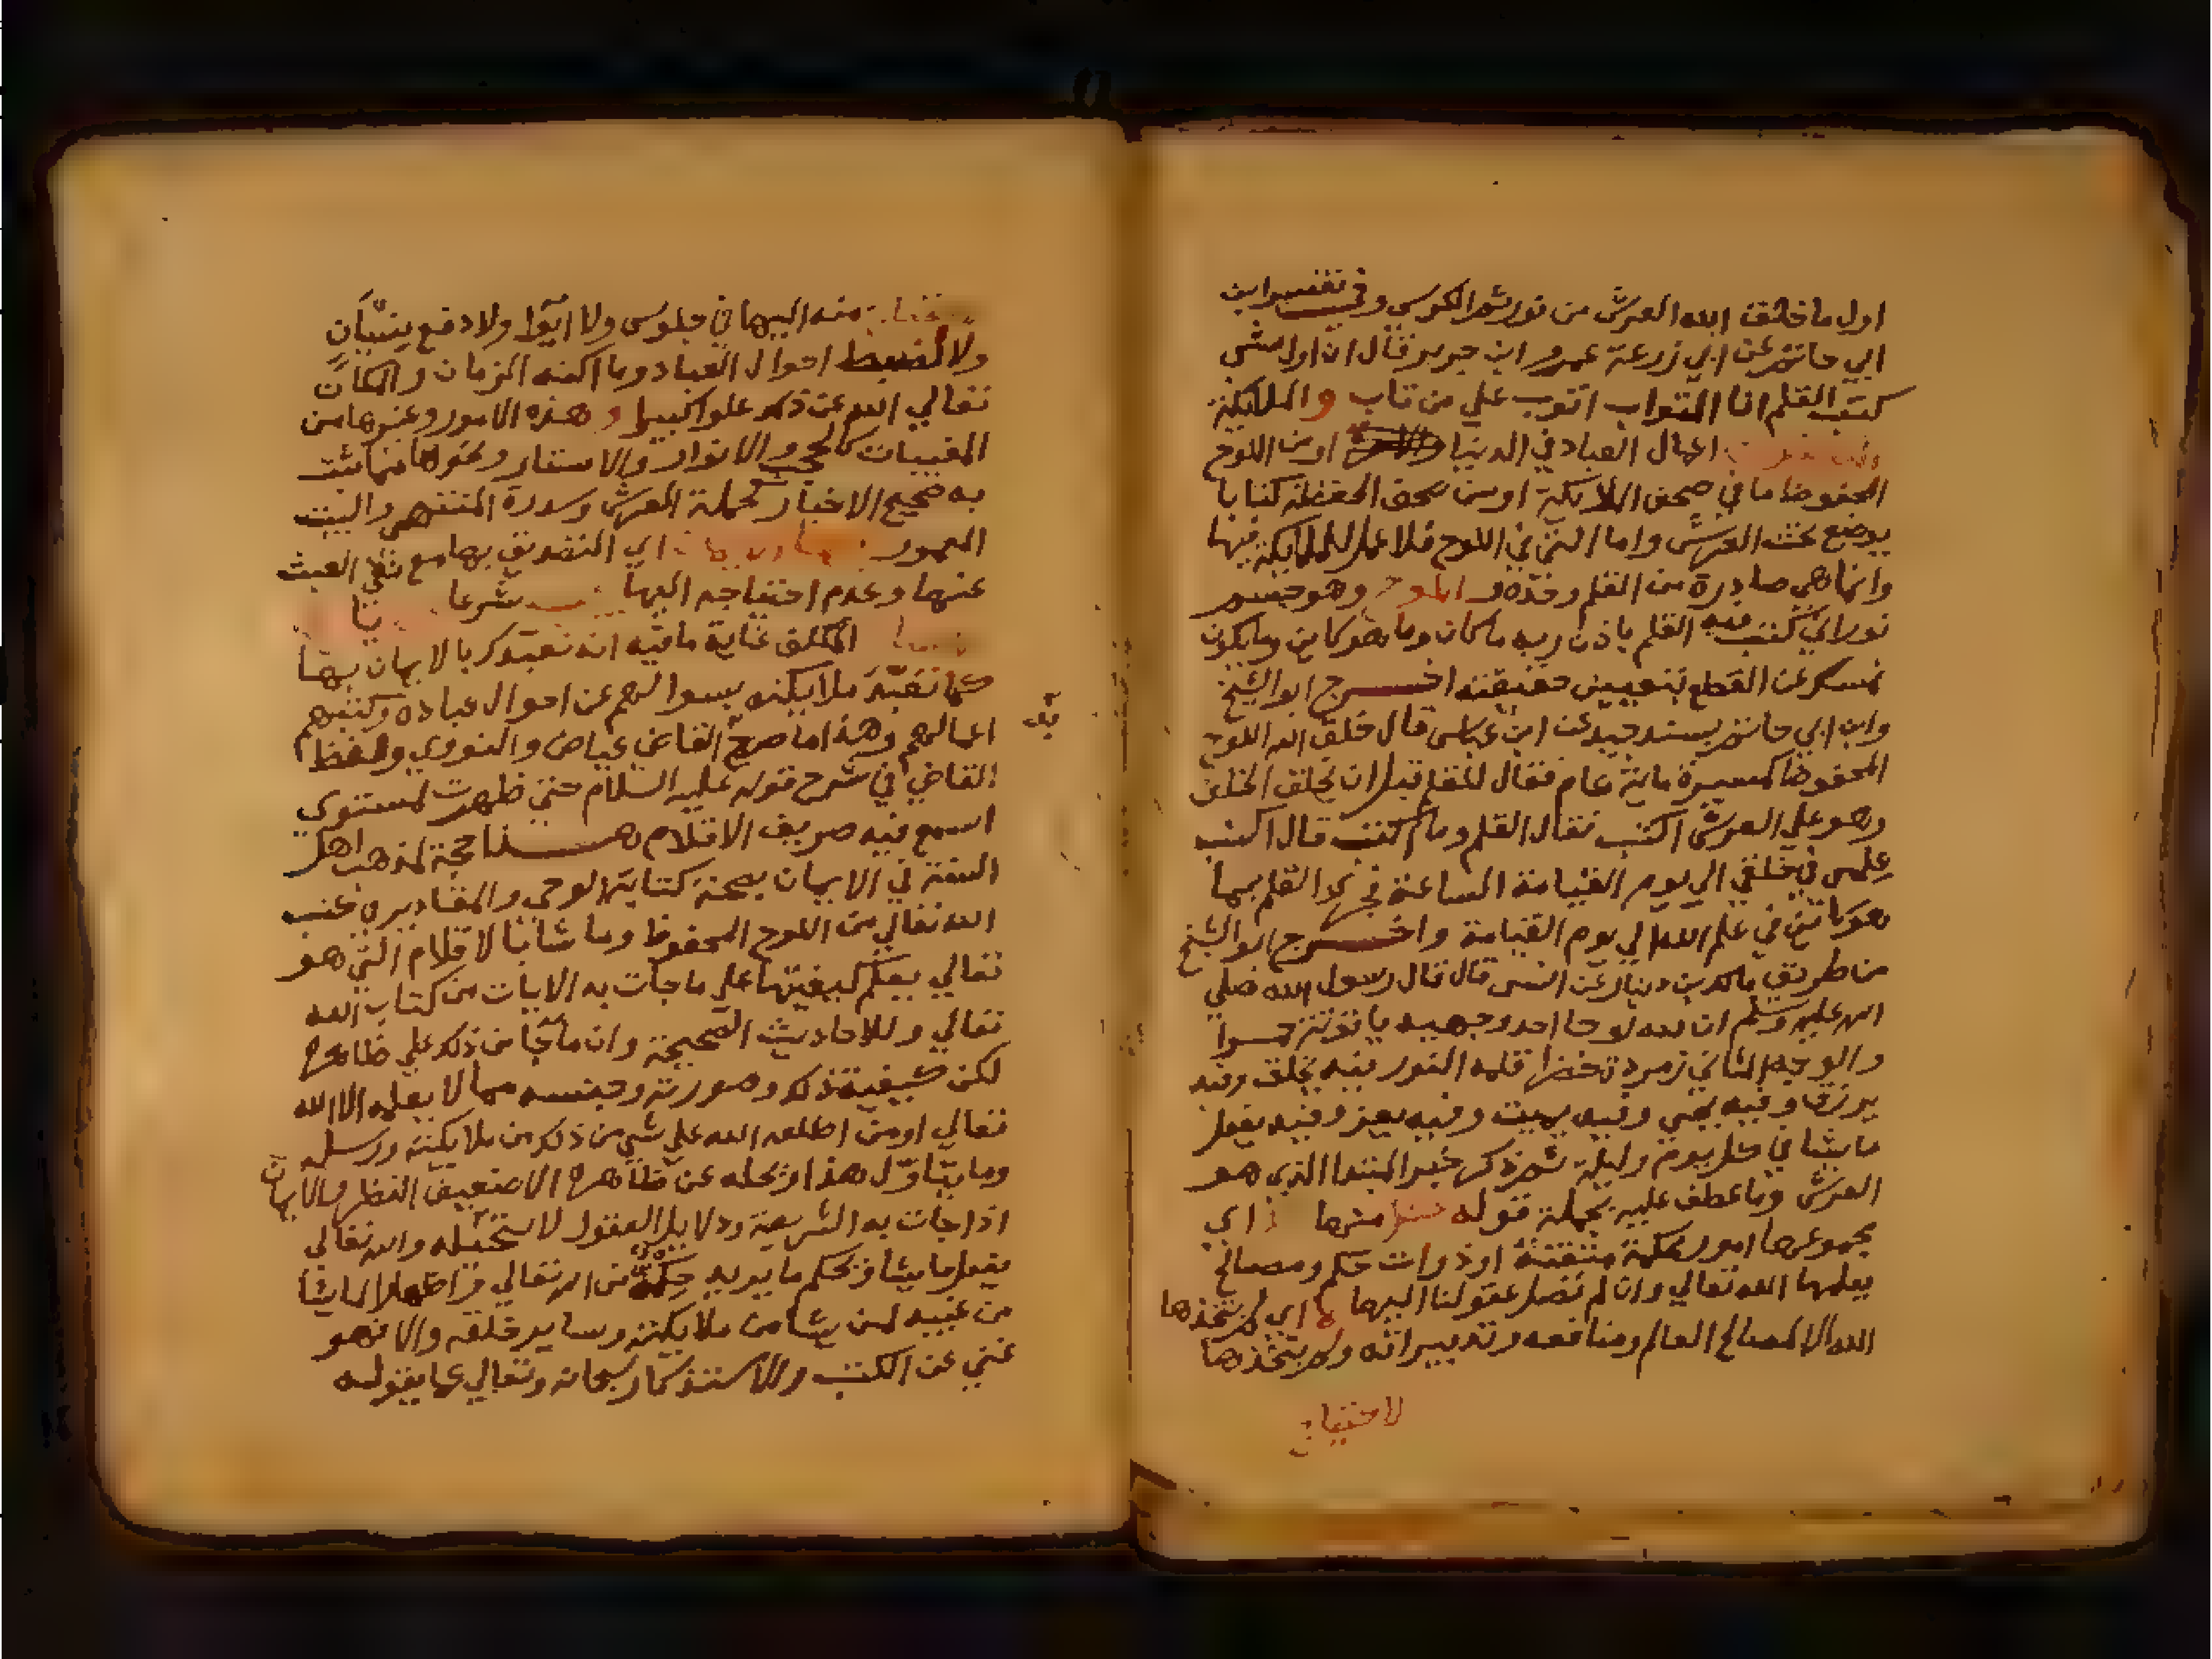 اول ما خلق الله العرش من نور ثم الكرسي وفي تفسير ابن
ابي حاتم عن ابي زرعة عمرو ابن جرير قال ان اول شي
كتب القلم انا التواب اتوب علي من تاب والملايكة
اعمال العباد في الدنيا او من اللوح
المحفوظ ما في صحف الملايكة او من صحف الحفظة كتابا
يوضع تحت العرش واما التي في اللوح فلا عمل للملايكة فيها
وانما هي صادرة من القلم وحده و اللوح وهو جسم
نوراني كتب فيه القلم باذن ربه ما كان وما هو كاين وما يكون
نمسك عن القطع بتعيين حقيقته اخرج ابو الشيخ
وابن ابي حاتم بسند جيد عن ابن عباس قال خلق الله اللوح
المحفوظ كمسيرة ماية عام فقال للقلم قبل ان يخلق الخلق
وهو علي العرش اكتب فقال القلم وما اكتب قال اكتب
علمي في خلقي الي يوم القيامة الساعة فجري القلم بما
هو كاين في علم الله الي يوم القيامة واخرج ابو الشيخ
من طريق مالك بن دينار عن انس قال قال رسول الله صلي
الله عليه وسلم ان لله لوحا احد وجهيه ياقوتة حمرا
والوجه الثاني زمردة خضرا قلمه النور فيه يخلق وفيه
يرزق وفيه يحيي وفيه يميت وفيه يعز وفيه يفعل
ما يشا في كل يوم وليلة ثم ذكر خبر المبتدا الذي هو
العرش وما عطف عليه بجملة قوله اي
مجموعها امور محكمة متقنة او ذوات حكم ومصالح
يعلمها الله تعالي وان لم تصل عقولنا اليها لا اي لم يتخذها
الله الا لمصالح العالم ومنافعه وتدبيراته ولم يتخذها
لاحتياج
منه اليها في جلوس ولا ايوا ولا دفع ينسيان
ولا لضبط احوال العباد وما اكنه الزمان والمكان
تعالي الله عن ذلك علوا كبيرا وهذه الامور وغيرها من
المغيبات كالحجب والانوار والاستار ونحوها مما ثبت
به صحيح الاخبار كحملة العرش وسدرة المنتهي والبيت
المعمور اي التصديق بها مع نفي العبث
عنها وعدم احتياجه اليها شرعا
المكلف غاية ما فيه انه تعبدك بالايمان بها
كما تعبد ملايكته بسوالهم عن احوال عباده وكتبهم
اعمالهم وهذا ما صرح القاضي عياض والنووي ولفظ
القاضي في شرح قوله عليه السلام حتي ظهرت لمستوي
اسمع فيه صريف الاقلام هذا حجة لمذهب اهل
السنة في الايمان بصحة كتابة الوحي والمقادير في كتب
الله تعالي من اللوح المحفوظ وما شا بالاقلام التي هو
تعالي يعلم كيفيتها علي ما جات به الايات من كتاب الله
تعالي والاحاديث الصحيحة وان ما جا من ذلك علي ظاهره
لكن كيفية ذلك وصورته وجنسه مما لا يعلمه الا الله
تعالي او من اطلعه الله علي شي من ذلك من ملايكته ورسله
وما يتاول هذا او يحيله عن ظاهره الا ضعيف النظر والايمان
اذا جات به الشريعة ودلايل العقول لا تستحيله والله تعالي
يفعل ما يشا ويحكم ما يريد حكمة من الله تعالي واظهارا لما يشا
من غيبه لمن يشا من ملايكته وساير خلقه والا فهو
غني عن الكتب والاستذكار سبحانه وتعالي عما يقوله